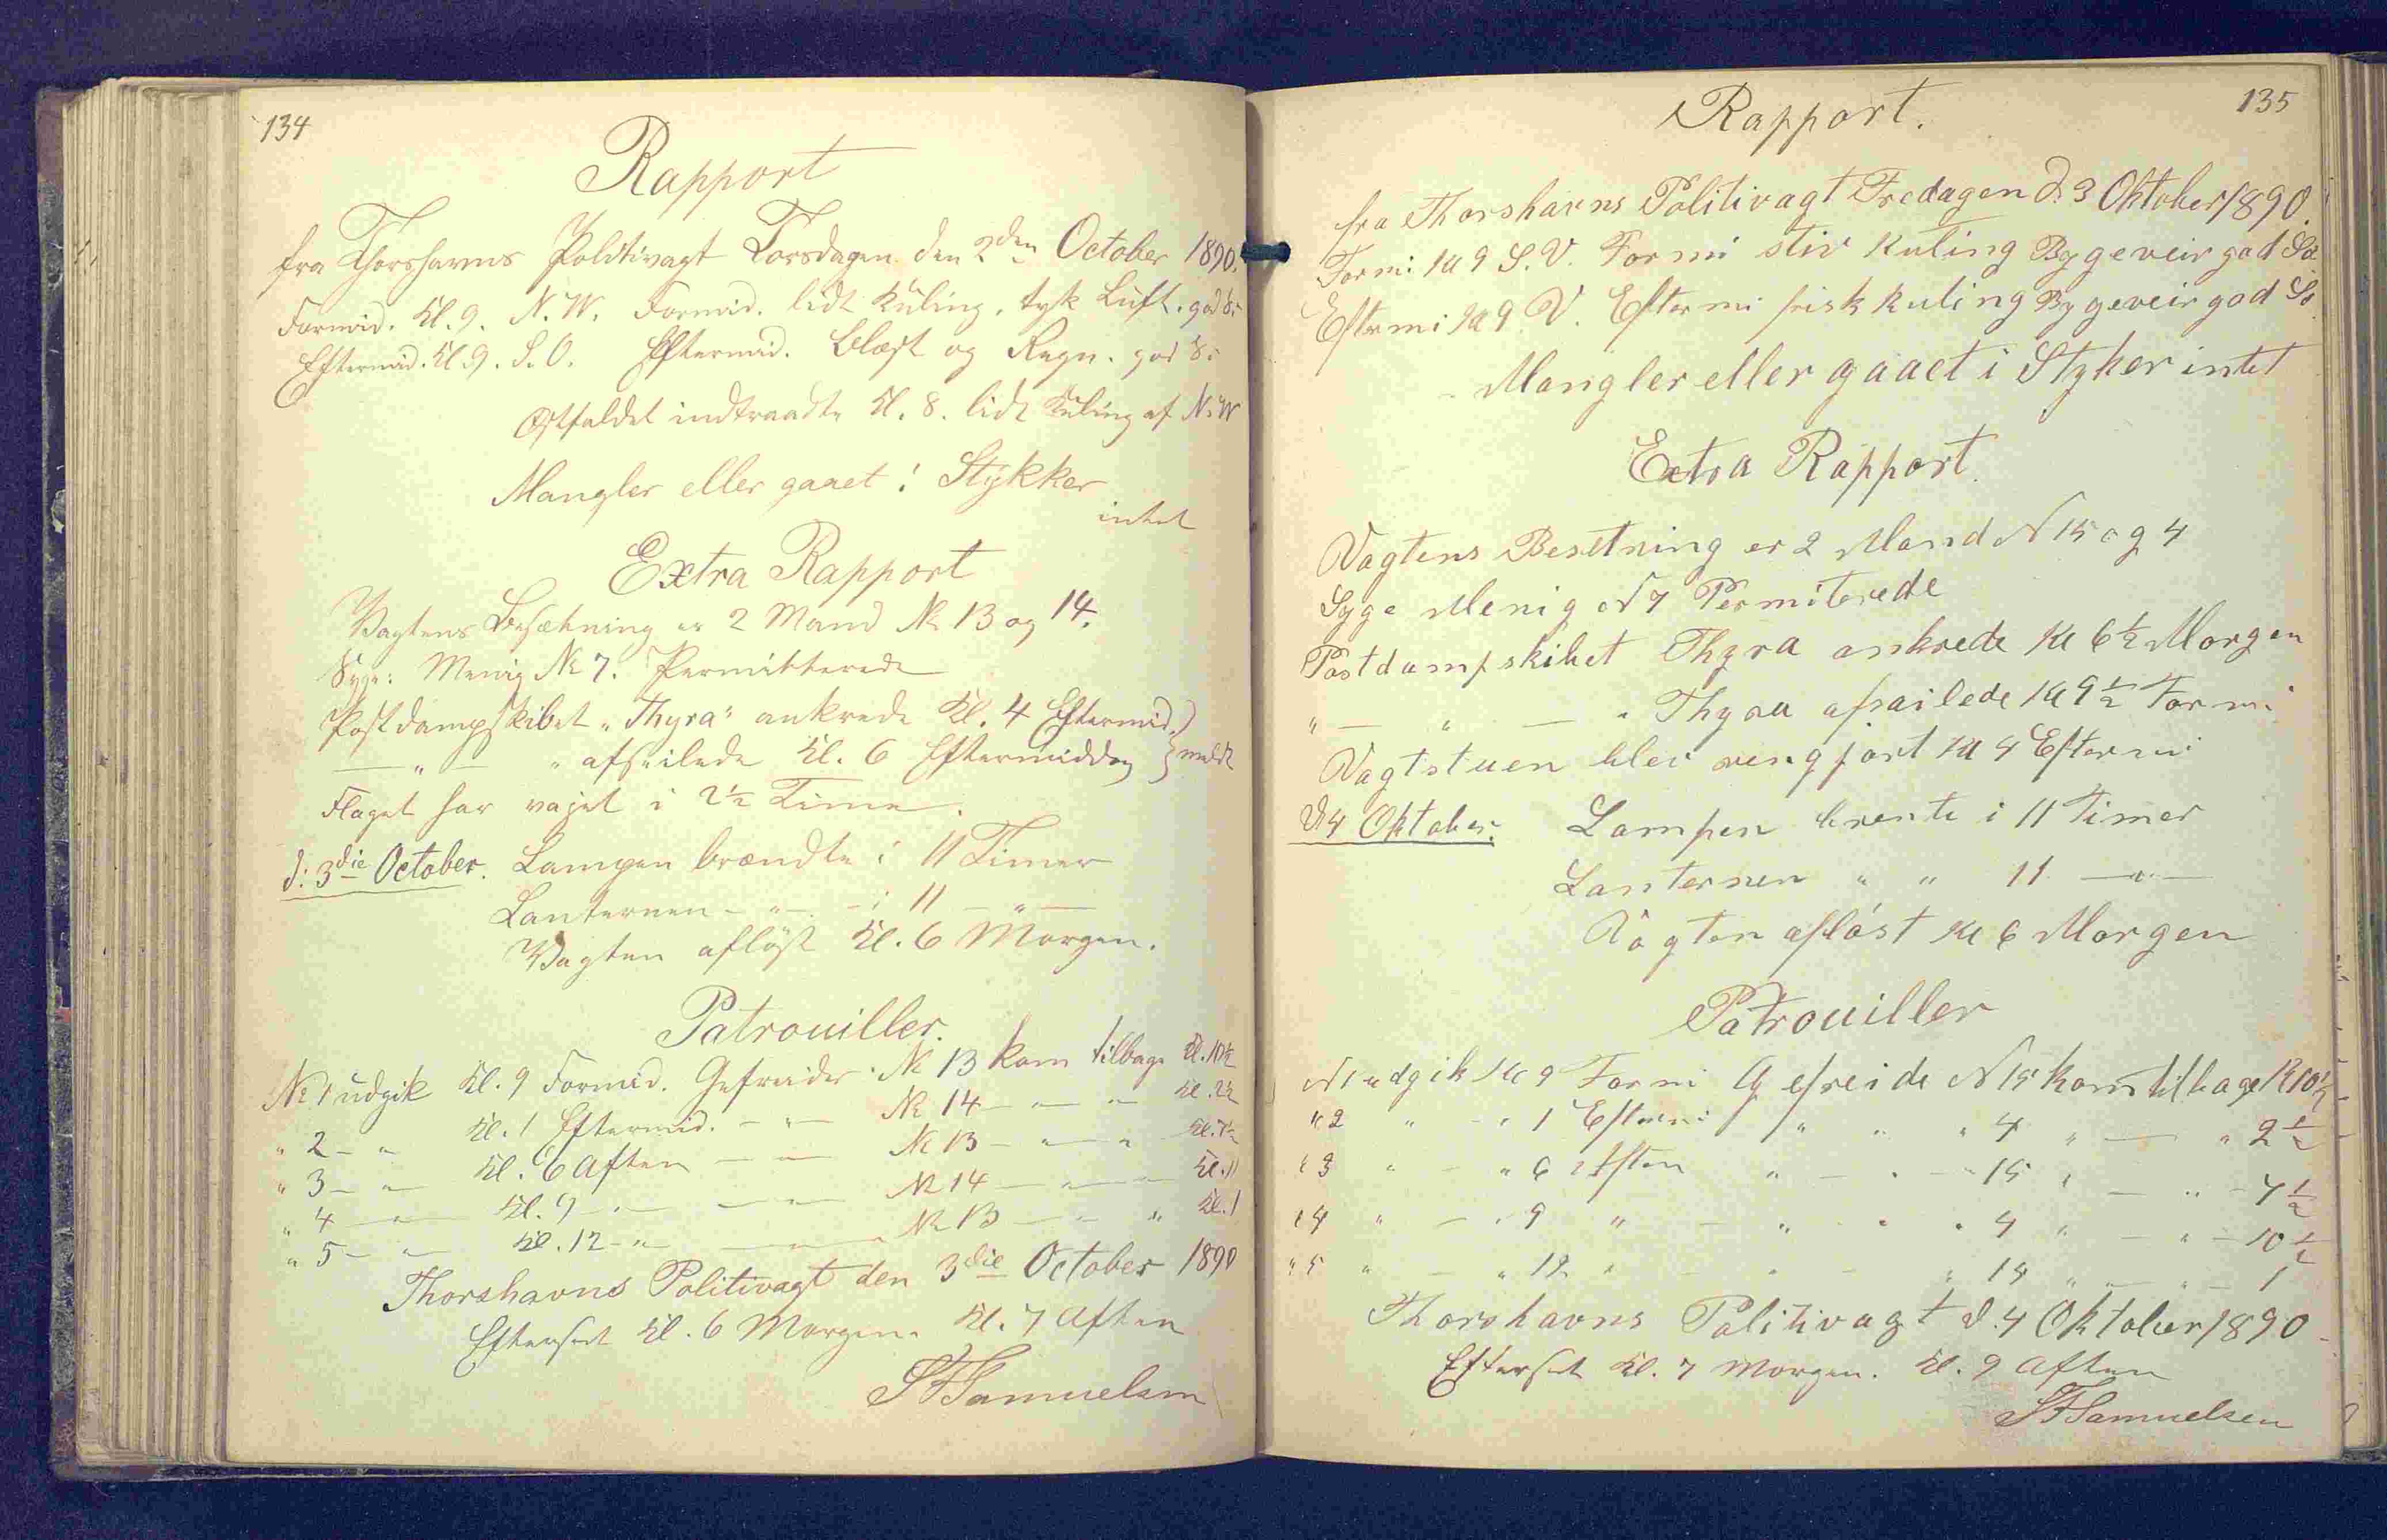 134
Rapport
fra Thorshavns Politivagt Torsdagen den 2den October 1890.
Formid. Kl. 9. N.W. Formid. lidt Kuling, tyk Luft. god Sö
Eftermid. Kl. 9. S.O. Eftermid. Blæst og Regn. god Sö
Østfaldet indtraadte Kl. 8. lidt Kuling af N.W
Mangler eller gaaet i Stykker
intet
Extra Rapport
Vagtens Besætning er 2 Mand No 13 og 14.
Syge: Menig No 7. Permitterede
Postdampskibet "Thyra" ankrede Kl. 4 Eftermid. }
— " — " afseilede Kl. 6 Eftermiddag } meldt
Flaget har vajet i 2½ Time.
d: 3die October. Lampen brændte i 11 Timer
Lanternen - " - - i 11 — " —
Vagten aflöst Kl. 6 Morgen.
Patrouiller.
No 1 udgik Kl. 9 Formid. Gefreider No 13 kom tilbage Kl. 10½
" 2 - " Kl. 1 Eftermid. - " - No 14 — " — " Kl. 2½
" 3 - " Kl. 6 Aften — " — No 13 — " — " Kl. 7½
" 4 — " — Kl. 9 - " — — " — No 14 — " — " — Kl. 11
" 5 - " — Kl. 12 - " — " — No 13 — " — " Kl. 1
Thorshavns Politivagt den 3die October 1890
Efterset Kl. 6 Morgen. Kl. 7 Aften
SFSamuelsen
135
Rapport.
fra Thorshavns Politivagt Fredagen d. 3 Oktober 1890.
Formi: Kl 9 S.V. Formi stiv Kuling Bygeveir god Sö
Eftermi Kl 9 V. Eftermi frisk Kuling Bygeveir god Sö
Mangler eller gaaet i Styker intet
Extra Rapport.
Vagtens Besetning er 2 Mand N 15 og 4
Syge Menig N 7 Permiterede
Postdampskibet Thyra ankrede Kl 6½ Morgen
" — " — " Thyra afsailede Kl 9½ Formi
Vagtstuen blev rengjort Kl 4 Eftermi
D 4 Oktober. Lampen brente i 11 Timer
Lanternen " " 11 — " —
Vagten afløst Kl 6 Morgen
Patrouiller
N 1 udgik Kl 9 Formi Gefreide N 15 kom tilbage Kl 10½
" 2 " - " 1 Eftermi " " " 4 " — " 2½
" 3 " - " 6 Aften " — " - 15 " — " - 7½
" 4 " — " 9 " — " " " 4 " — " — 10½
" 5 " — " 12 " — " — " 15 " — " — 1
Thorshavns Politivagt d. 4 Oktober 1890
Efterset Kl. 7 Morgen. Kl. 9 Aften
SFSamuelsen